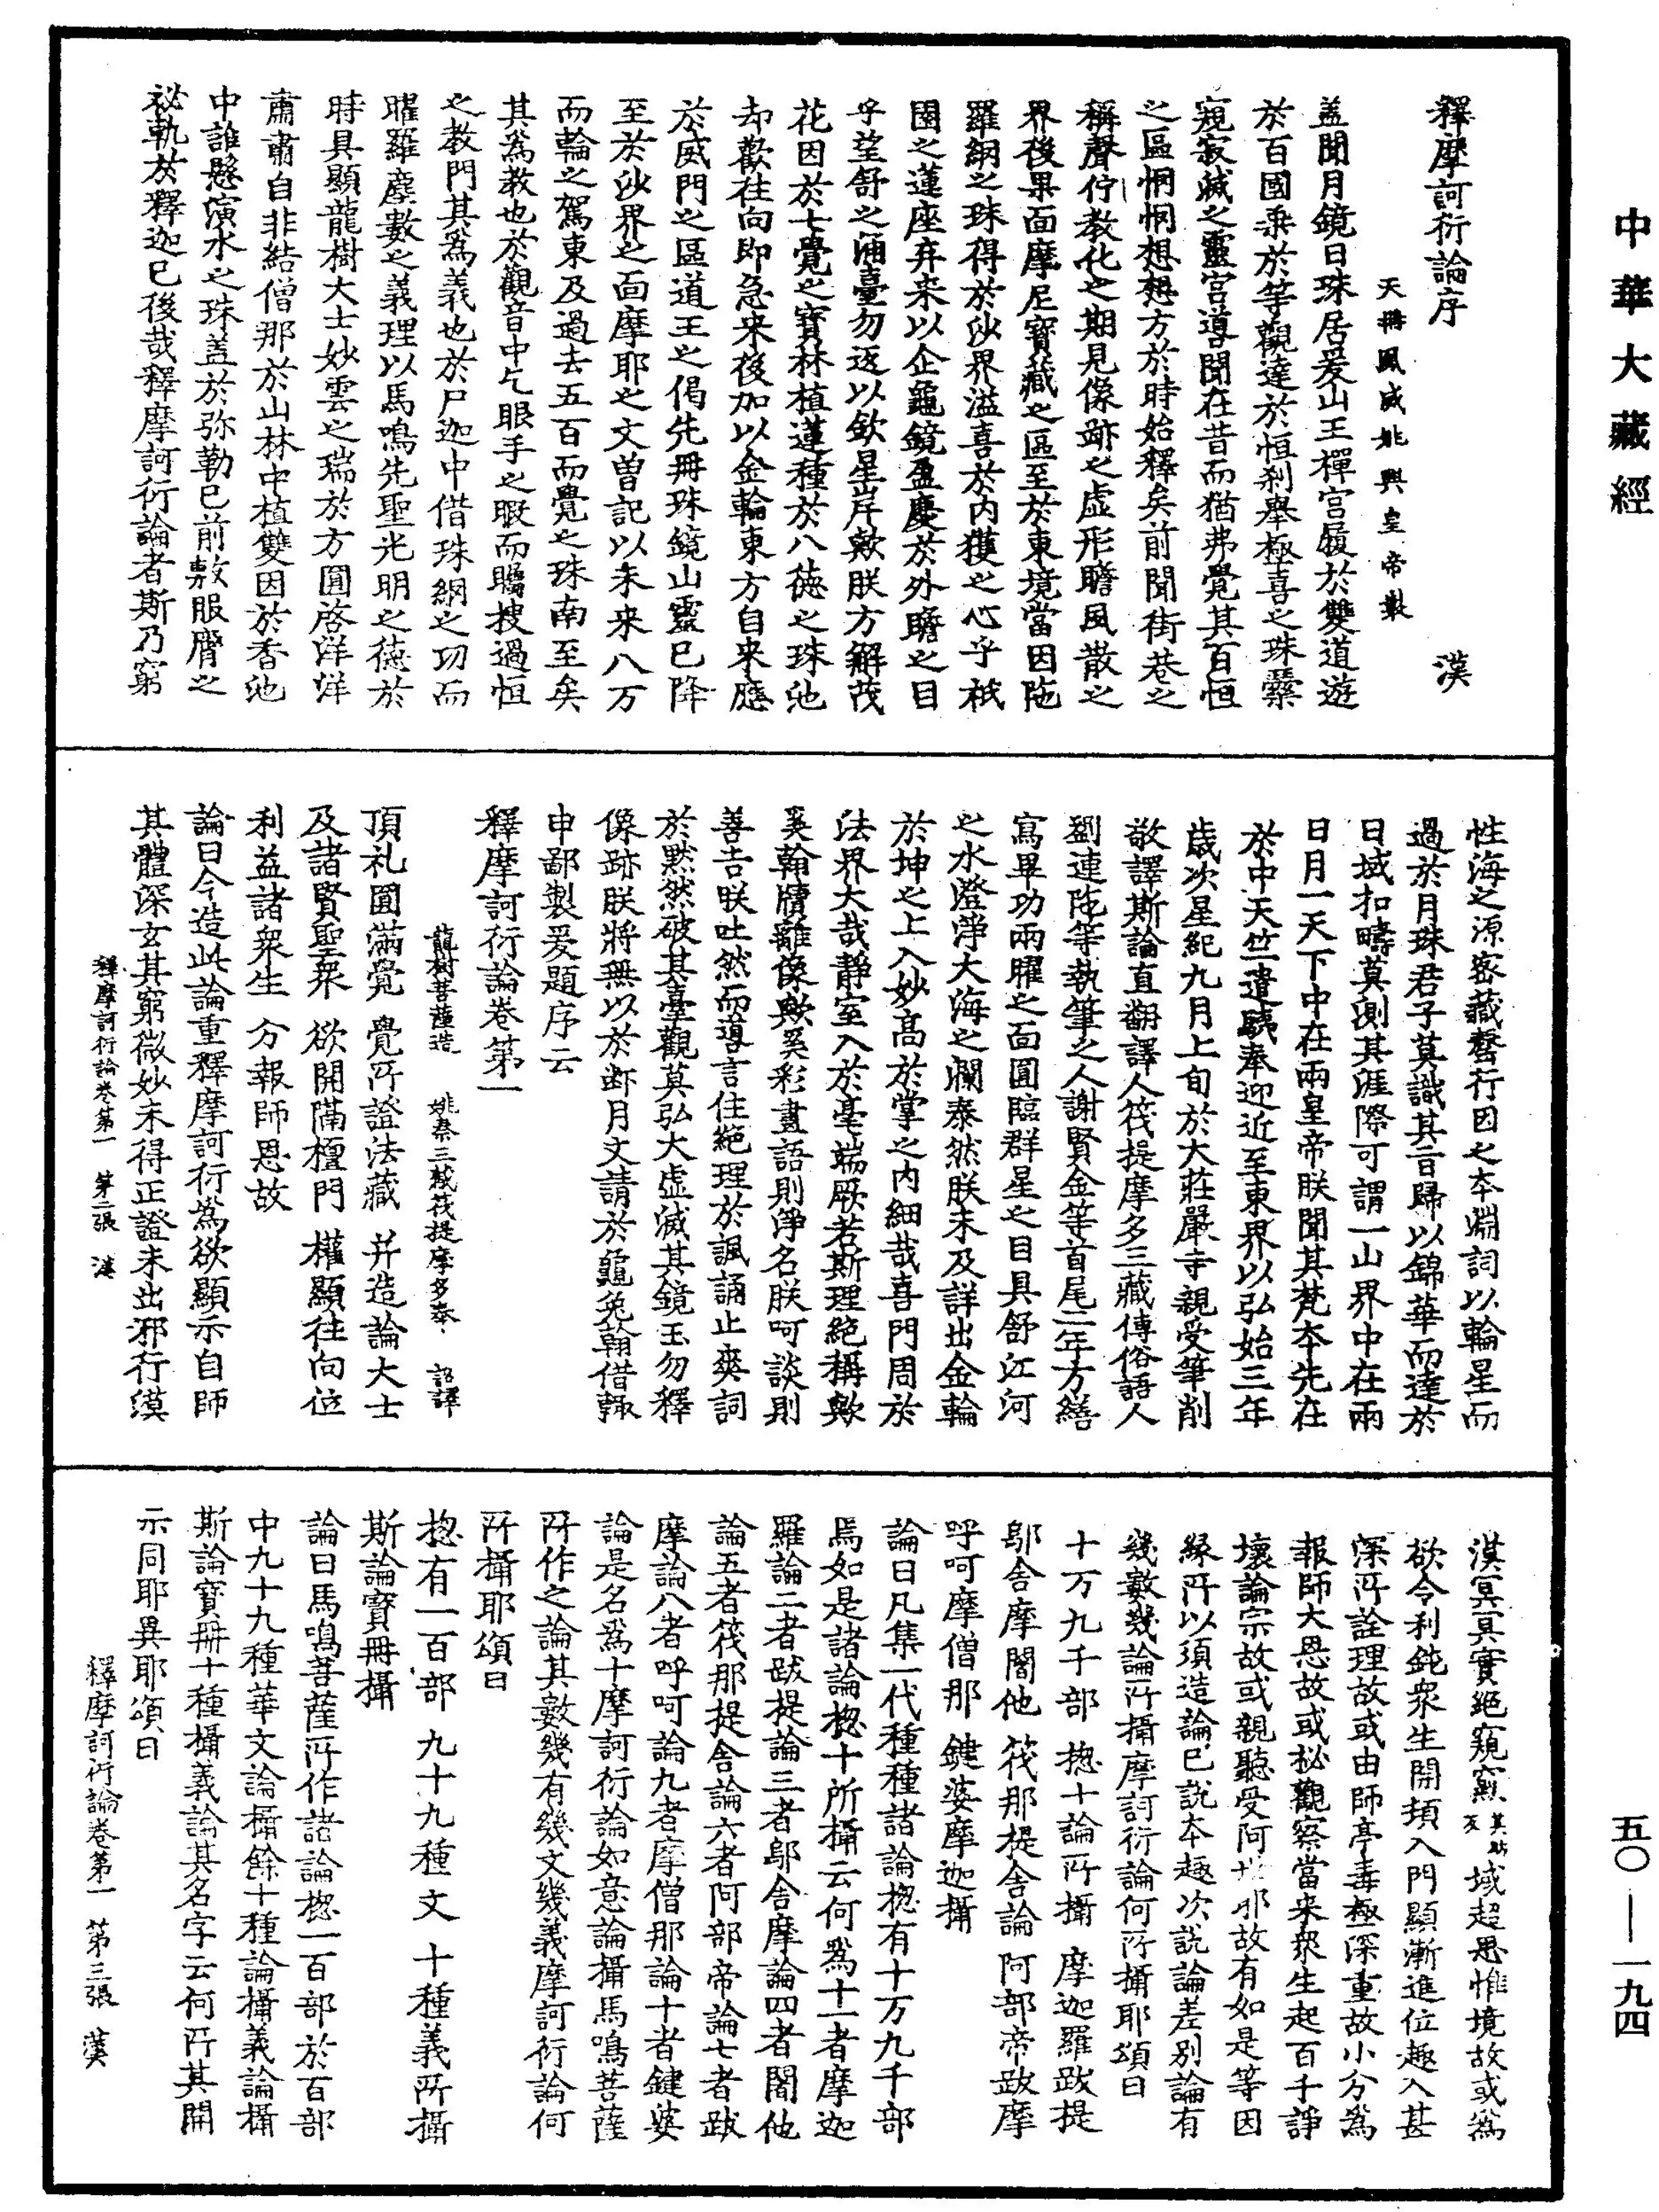 中華大藏經
五〇——一九四
釋摩訶衍論序 漢
天冊鳳威姚興皇帝製
蓋聞月鏡日珠居爰山王禪宮履於雙道遊
於百國乘於等觀達於恒刹舉極喜之珠霧
窺寂滅之靈宮導聞在昔而猶弗覺其百恒
之區惘惘想想方於時始釋矣前聞街巷之
稱聲佇教化之期見像跡之虛形瞻風散之
界後果面摩尼寶藏之區至於東境當因陁
羅網之珠得於沙界溢喜於內獲之心乎祇
園之蓮座弃来以企龜鏡盈慶於外瞻之目
乎望舒之洒臺勿返以欽星岸歟朕方解茂
花因於七覺之寶林植蓮種於八德之珠池
却歡往向即急来後加以金輪東方自来應
於威門之區道王之偈先冊珠鏡山靈巳降
至於沙界之面摩耶之文曽記以未来八万
而輪之駕東及過去五百而覺之珠南至矣
其為教也於觀音中乞眼手之暇而矚搜過恒
之教門其為義也於尸迦中借珠網之功而
曜羅塵數之義理以馬鳴先聖光明之德於
時具顯龍樹大士妙雲之瑞於方圓啓洋洋
肅肅自非結僧那於山林中植雙因於香池
中誰懸演水之珠盖於弥勒巳前敷服膺之
祕軌於釋迦巳後哉釋摩訶衍論者斯乃窮
性海之源密藏罄行因之本淵詞以輪星而
過於月珠君子莫識其旨歸以錦華而達於
日域扣疇莫測其涯際可謂一山界中在兩
日月一天下中在兩皇帝朕聞其梵本先在
於中天竺遣䮾奉迎近至東界以弘始三年
歲次星紀九月上旬於大莊嚴寺親受筆削
敬譯斯論直翻譯人筏提摩多三藏傳俗語人
劉連陁等執筆之人謝賢金等首尾二年方繕
寫畢功兩曜之面圓臨群星之目具舒江河
之水澄淨大海之瀾泰然朕未及詳出金輪
於坤之上入妙高於掌之內細哉喜門周於
法界大哉靜室入於毫端厥若斯理絕稱歟
奚翰牘離像歟奚彩畫語則淨名朕呵談則
善吉朕吐然而導言住絕理於諷誦止爽詞
於黙然破其臺觀莫弘大虛滅其鏡玉勿釋
像跡朕將無以於彫月文請於龜兔翰借輙
申鄙製爰題序云
釋摩訶衍論卷第一
龍樹菩薩造 姚秦三藏筏提摩多奉 詔譯
頂礼圓滿覺 覺所證法藏 并造論大士
及諸賢聖衆 欲開隔檀門 權顯往向位
利益諸衆生 分報師恩故
論曰今造此論重釋摩訶衍為欲顯示自師
其體深玄其窮微妙未得正證未出邪行漠
釋摩訶衍論卷第一 第二張 漢
漠冥冥實絕窺窬域超思惟境故或為
欲令利鈍衆生開頞入門顯漸進位趣入甚
深所詮理故或由師亭毒極深重故小分為
報師大恩故或祕觀察當来衆生起百千諍
壞論宗故或親聽受阿世耶故有如是等因
縁所以須造論巳說本趣次説論差別論有
幾數幾論所攝摩訶衍論何所攝耶頌曰
十万九千部 揔十論所攝 摩迦羅跋提
鄔舍摩閣他 筏那提舍論 阿部帝跋摩
呼呵摩僧那 鍵婆摩迦攝
論曰凡集一代種種諸論揔有十万九千部
焉如是諸論揔十所攝云何為十一者摩迦
羅論二者跋提論三者鄔舍摩論四者閣他
論五者筏那提舍論六者阿部帝論七者跋
摩論八者呼呵論九者摩僧那論十者鍵婆
論是名為十摩訶衍論如意論攝馬鳴菩薩
所作之論其數幾有幾文幾義摩訶衍論何
所攝耶頌曰
揔有一百部 九十九種文 十種義所攝
斯論寶冊攝
論曰馬鳴菩薩所作諸論揔一百部於百部
中九十九種華文論攝餘十種論攝義論攝
斯論寶冊十種攝義論其名字云何所其開
示同耶異耶頌曰
釋摩訶衍論卷第一 第三張 漢